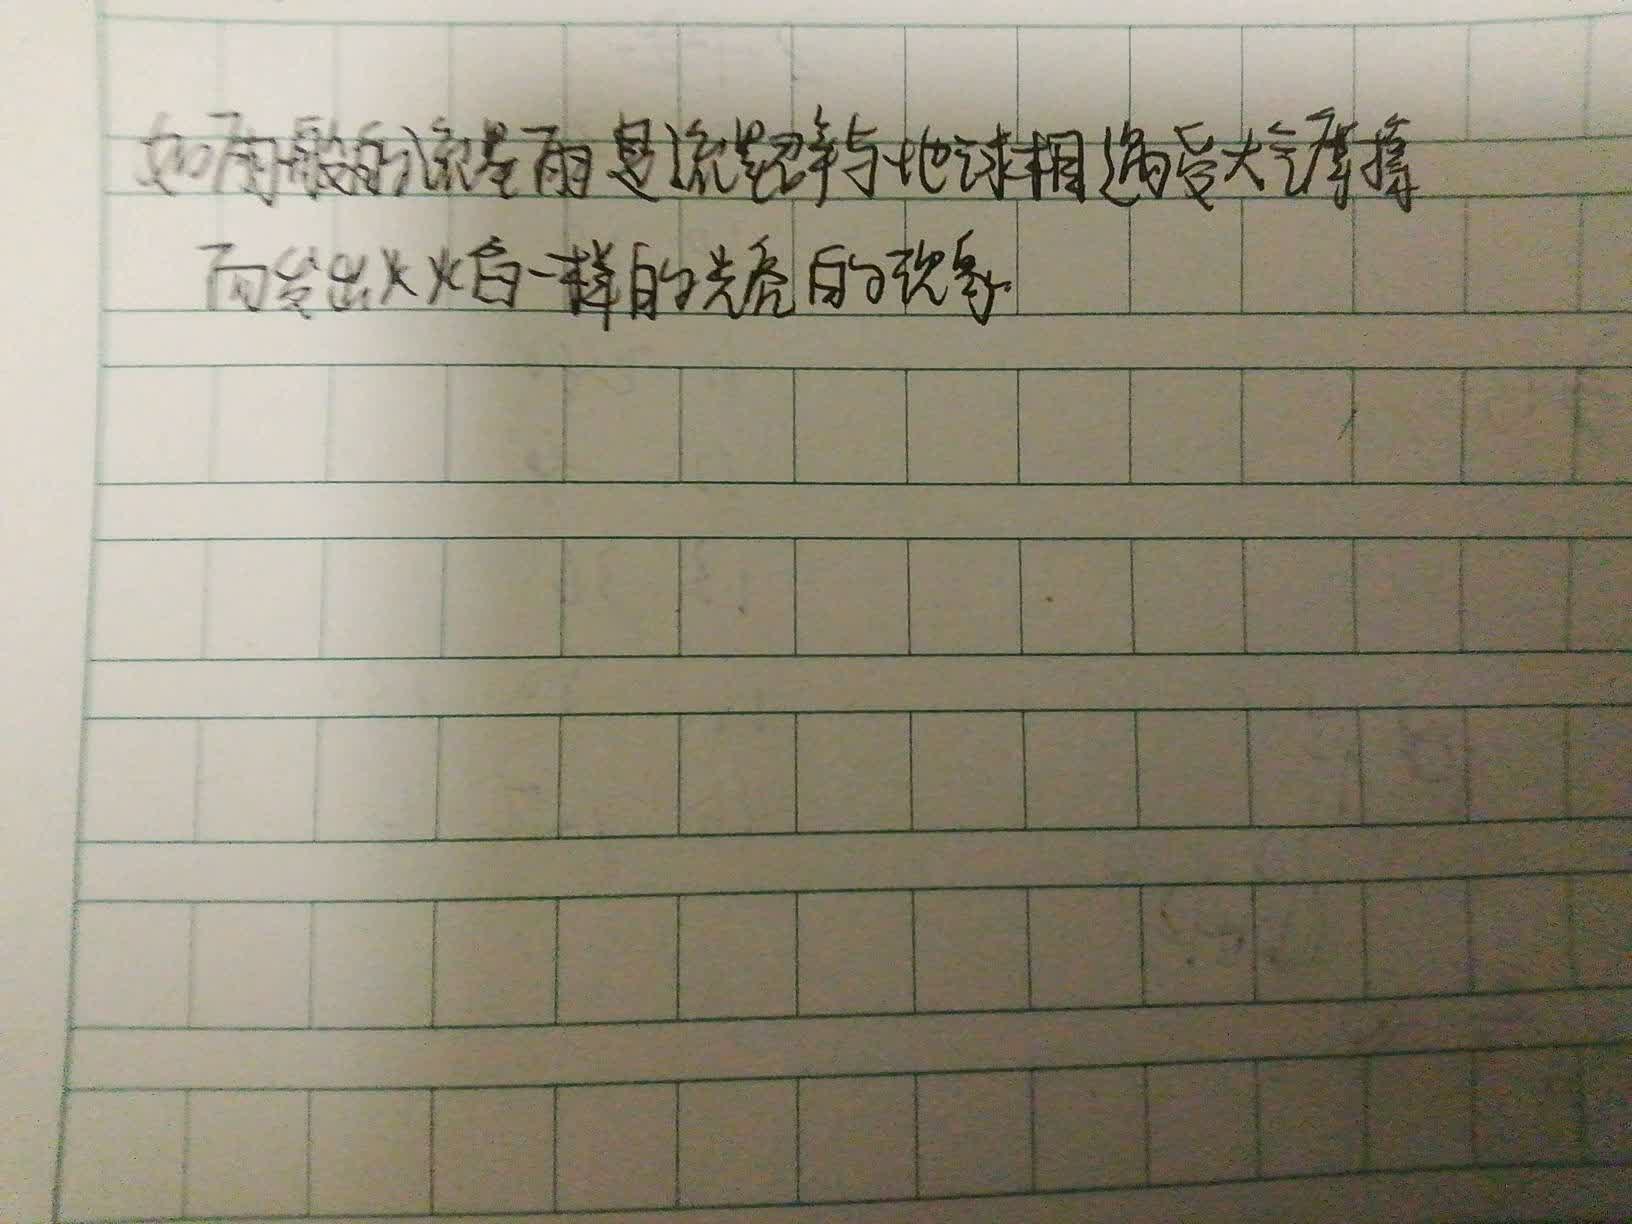 如雨般的流星雨是流星群与地球相遇受大气摩擦
而发出火焰一样的光亮的现象.